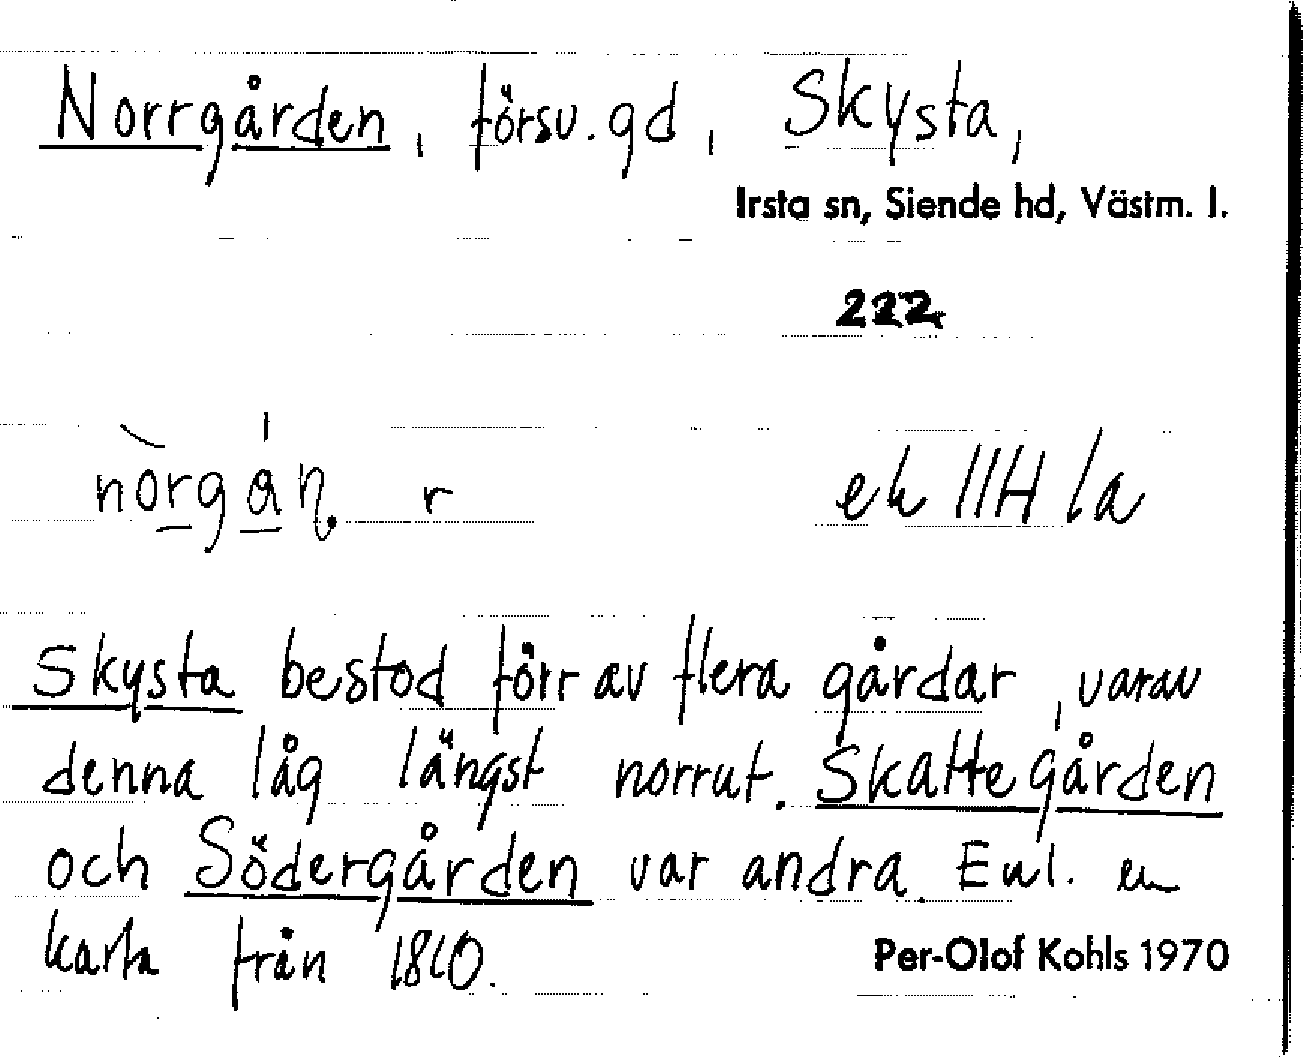 Norrgården, försv. gd, Skysta,
Irsta sn, Siende hd, Västm. l.
222
r ek
Skysta bestod förr av flera gårdar, varav
denna låg längst norrut. Skattegården
och Södergården var andra. Enl. en
karta från 1810.
Per-Olof Kohls 1970